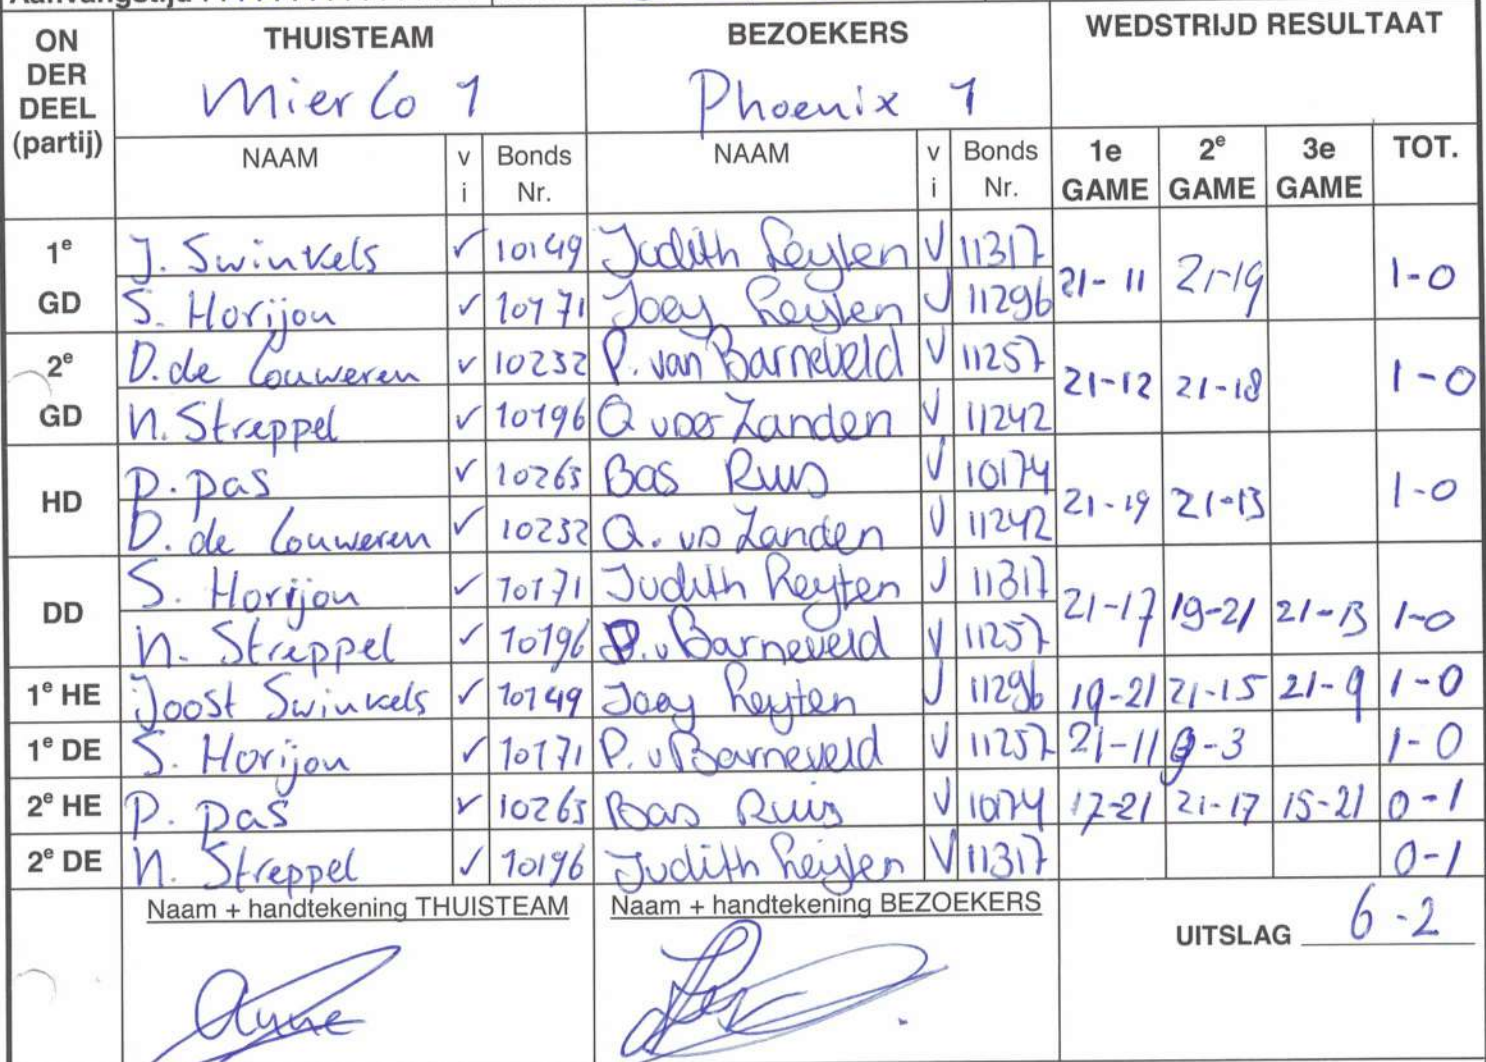 ON DER DEEL (partij) THUISTEAM BEZOEKERS WEDSTRIJD RESULTAAT
Mierlo 1 Phoenix 1
NAAM vi Bonds Nr. NAAM vi Bonds Nr. 1e GAME 2e GAME 3e GAME TOT.
1e GD J. Swinkels v 10149 Judith Leyten V 11317 21-11 21-19 1-0
S. Horijon v 10171 Joey Leyten V 11296
2e GD D. de Louweren v 10232 P. van Barneveld V 11257 21-12 21-18 1-0
N. Streppel v 10196 Q vd Zanden V 11242
HD P. Pas v 10263 Bas Ruis V 10174 21-19 21-13 1-0
D. de Louweren v 10232 Q. vd Zanden V 11242
DD S. Horijon v 10171 Judith Leyten V 11317 21-17 19-21 21-13 1-0
N. Streppel v 10196 P. v Barneveld V 11257
1e HE Joost Swinkels v 10149 Joey Leyten V 11296 19-21 21-15 21-9 1-0
1e DE S. Horijon v 10171 P. v Barneveld V 11257 21-11 9-3 1-0
2e HE P. Pas v 10263 Bas Ruis V 10174 17-21 21-17 15-21 0-1
2e DE N. Streppel v 10196 Judith Leyten V 11317 0-1
Naam + handtekening THUISTEAM Naam + handtekening BEZOEKERS UITSLAG 6-2